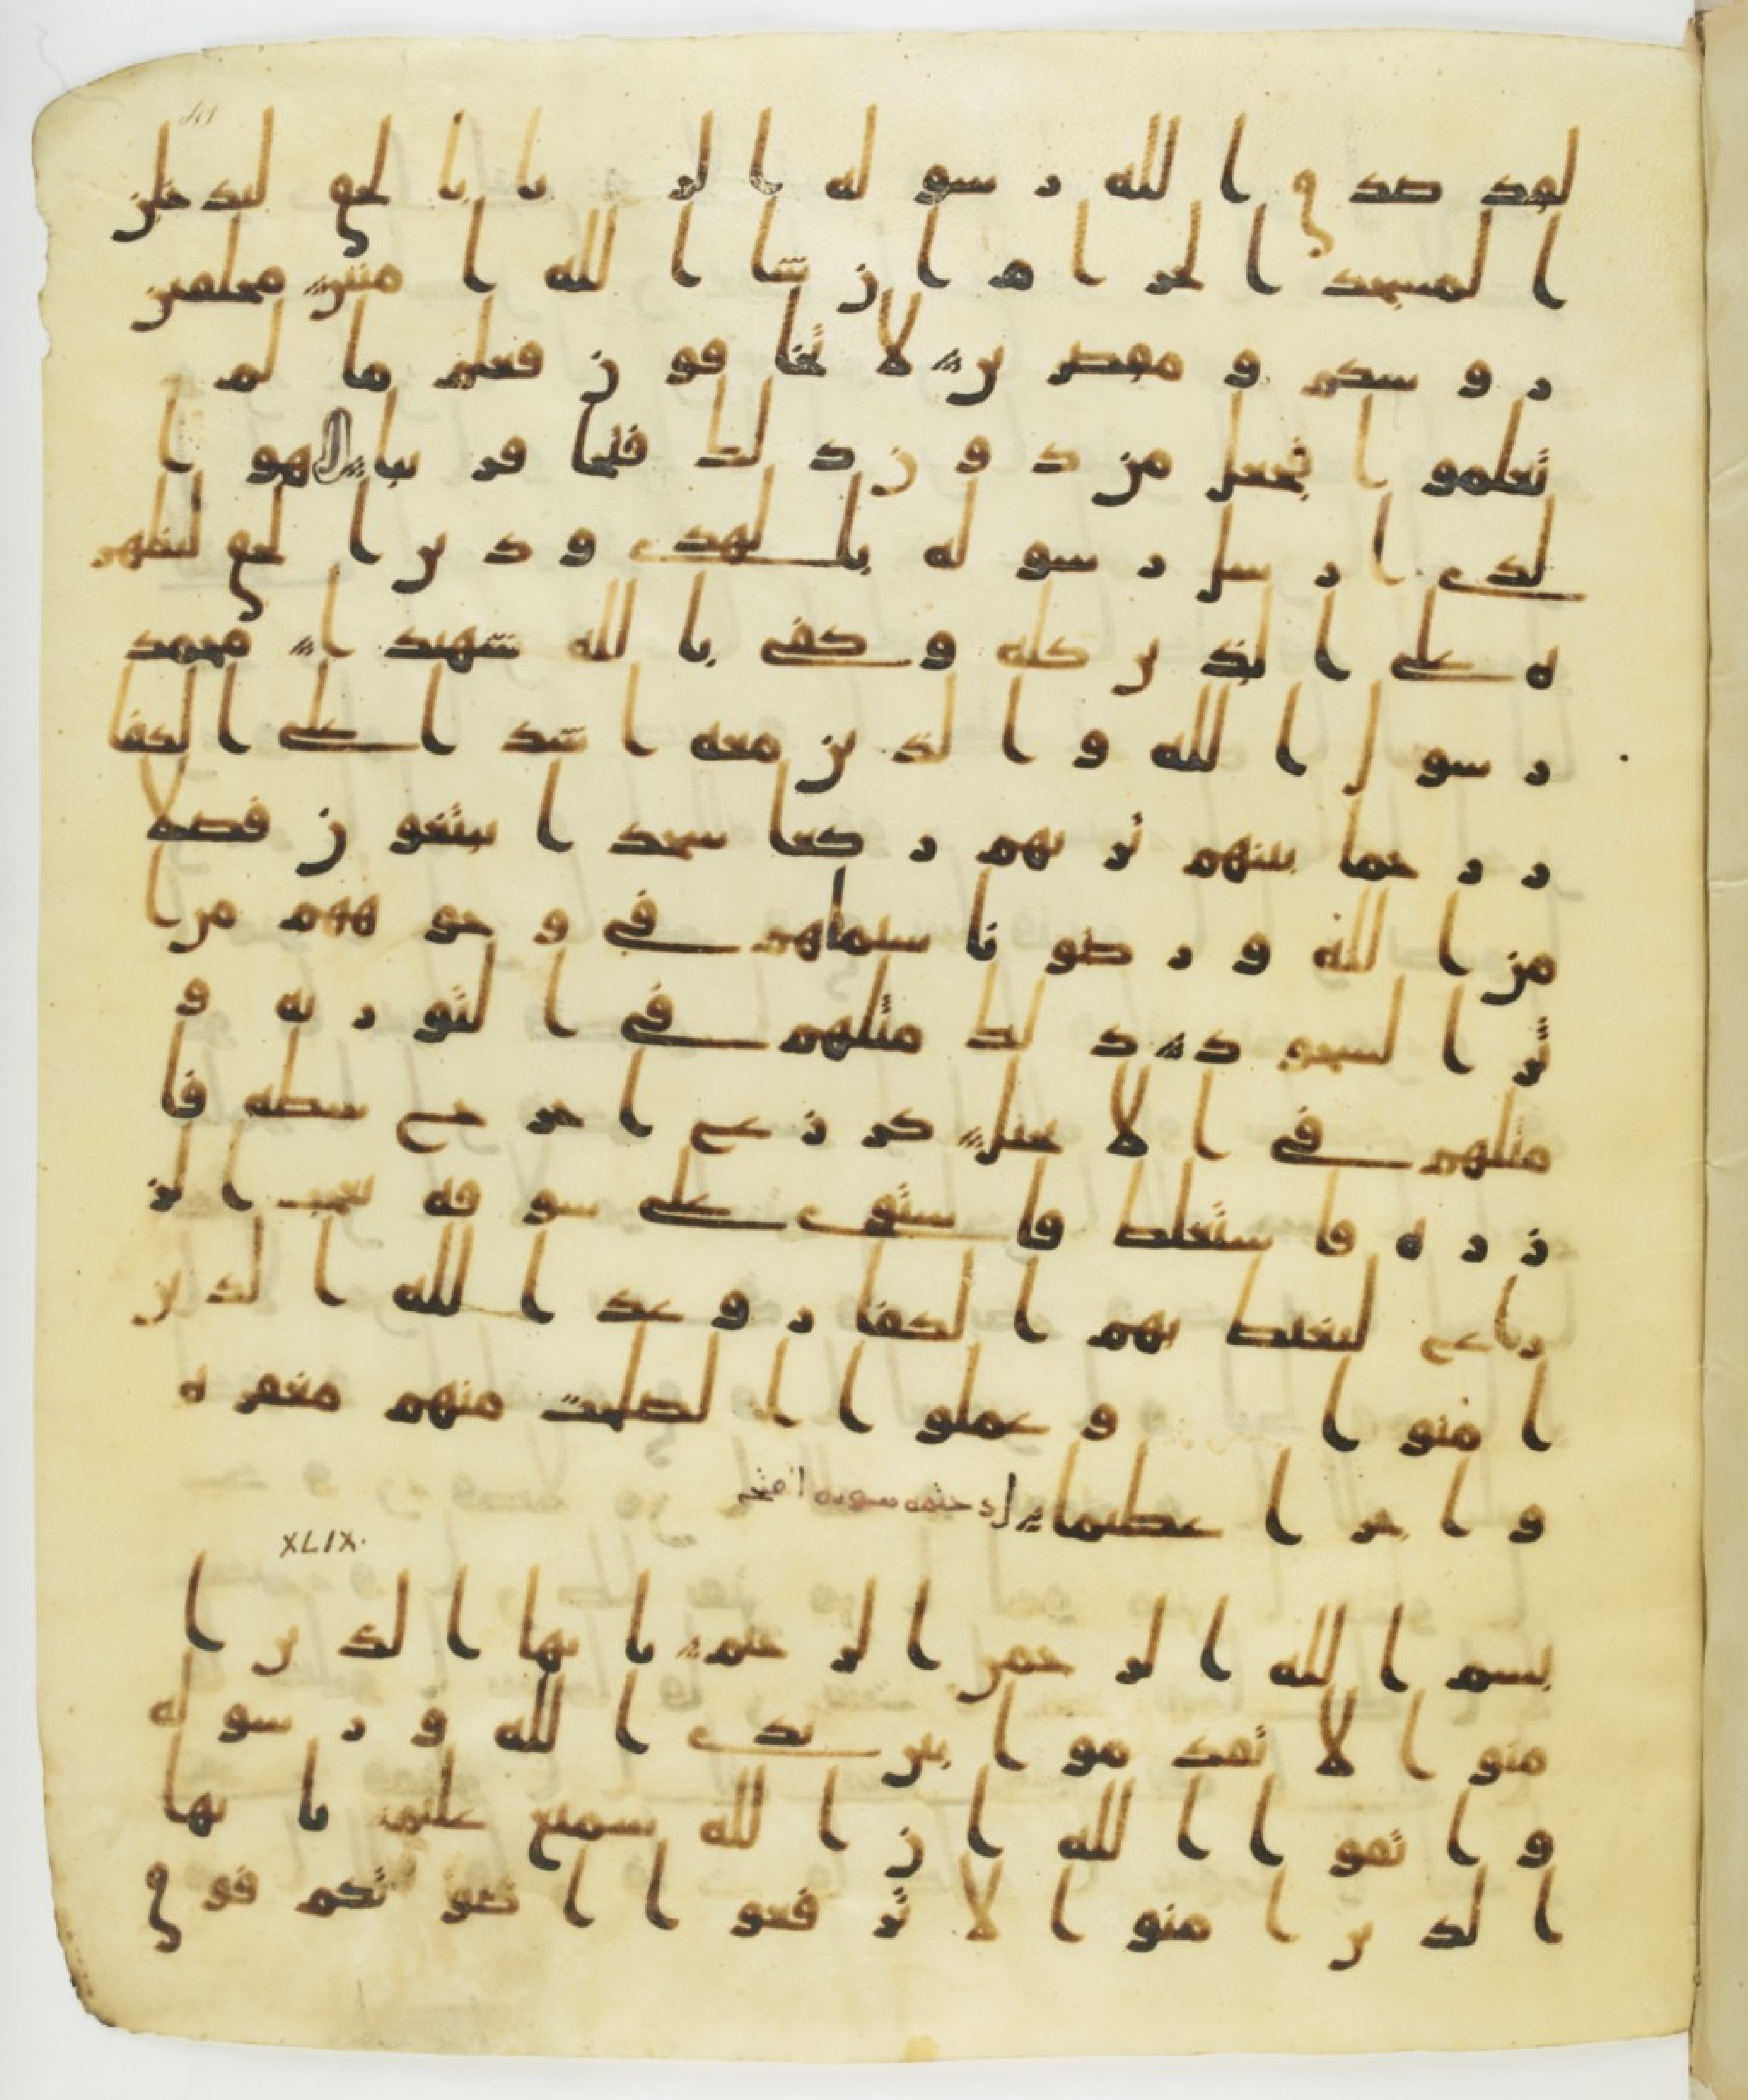 لقد صدق الله رسوله الريا بالحق لتدخلن
المسجد الحرام ان شا الله امنين محلقين
روسكم ومقصرين لا تخافون فعلم ما لم
تعلموا فجعل من دون ذلك فتحا قريبا هو ا
لذي ارسل رسوله بالهدى ودين الحق ليظهر
ه على الدين كله وكفى بالله شهيدا محمد
رسول الله والذين معه اشدا على الكفا
ر رحما بينهم تريهم ركعا سجدا يبتغون فضلا
من الله ورضونا سيماهم في وجوههم من ا
ثر السجود ذلك مثلهم في التوريه و
مثلهم في الانجيل كزرع اخرج شطه فا
زره فاستغلظ فاستوى على سوقه يعجب الز
راع ليغيظ بهم الكفار وعد الله الذين
امنوا وعملوا الصلحت منهم مغفره
واجرا عظيما ختمه سوره الفتح
XLIX.
بسم الله الرحمن الرحيم يايها الذين ا
منوا لا تقدموا بين يدي الله ورسوله
واتقوا الله ان الله سميع عليم يايها
الذين امنوا لا ترفعوا اصوتكم فوق